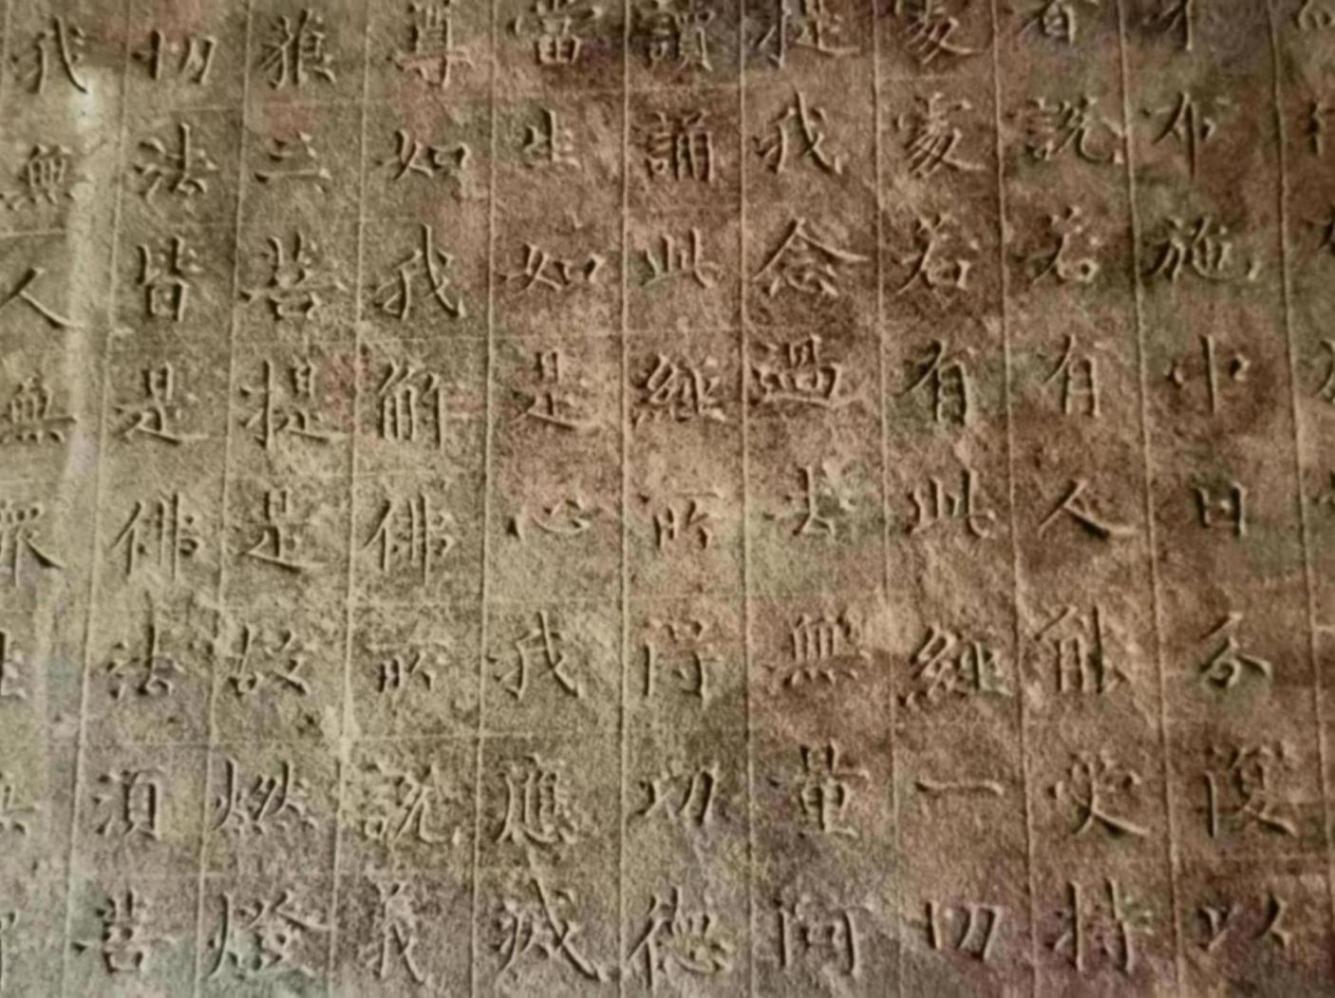 布施中日分復以
者說若有人能受持
處處若有此經一切
提我念過去無量阿
讀誦此經所得功德
當生如是心我應滅
尊如我解佛所說義
藐三菩提是故燃燈
切法皆是佛法須菩
我無人無眾生